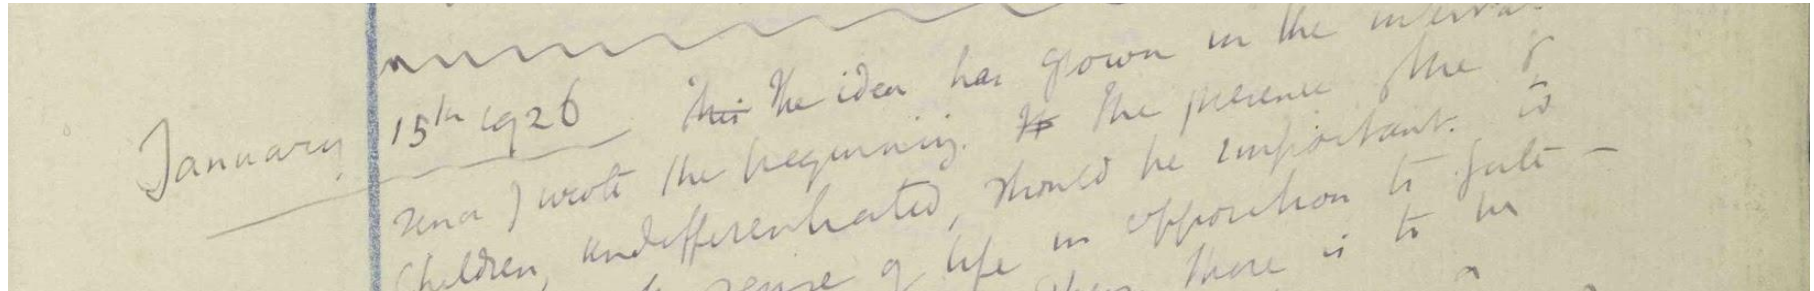 January 15th 1926 This The idea has grown in the interval
since I wrote the beginning. The presence of the 8
children, undifferentiated, should be important. to
sense of life in opposition to fate –
there is to be